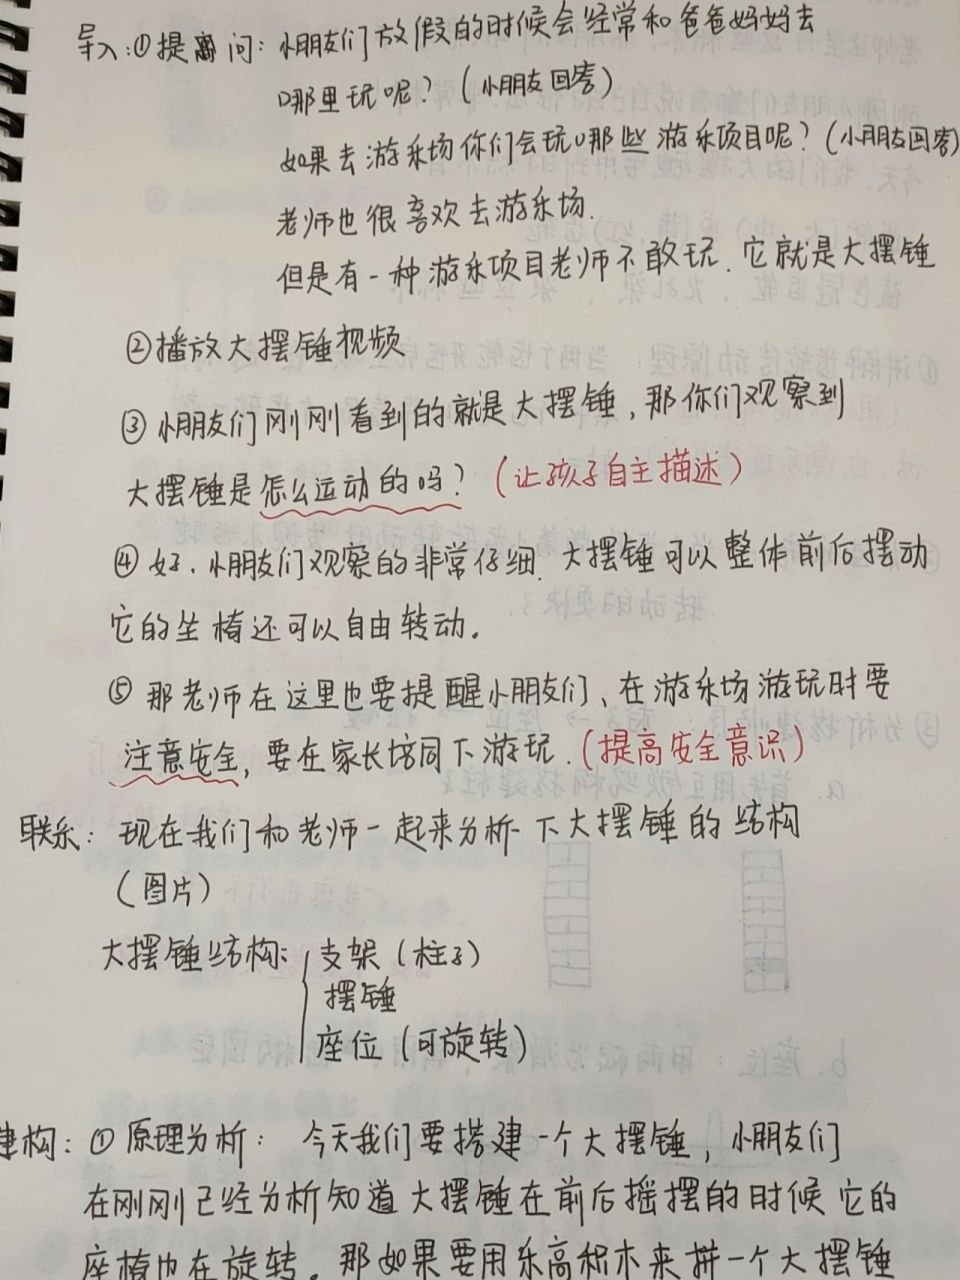 导入:①提问: 小朋友们放假的时候会经常和爸爸妈妈去
哪里玩呢?(小朋友回答)
如果去游乐场你们会玩哪些游乐项目呢?(小朋友回答)
老师也很喜欢去游乐场.
但是有一种游乐项目老师不敢玩.它就是大摆锤
②播放大摆锤视频
③小朋友们刚刚看到的就是大摆锤,那你们观察到
大摆锤是怎么运动的吗?(让孩子自主描述)
④好.小朋友们观察的非常仔细.大摆锤可以整体前后摆动
它的坐椅还可以自由转动。
⑤那老师在这里也要提醒小朋友们、在游乐场游玩时要
注意安全,要在家长培同下游玩.(提高安全意识)
联系:现在我们和老师一起来分析一下大摆锤的结构
(图片)
大摆锤结构: 支架(柱子)
摆锤
座位(可旋转)
建构:①原理分析: 今天我们要搭建一个大摆锤,小朋友们
在刚刚已经分析知道大摆锤在前后摇摆的时候它的
座椅也在旋转。那如果要用乐高积木来拼一个大摆锤